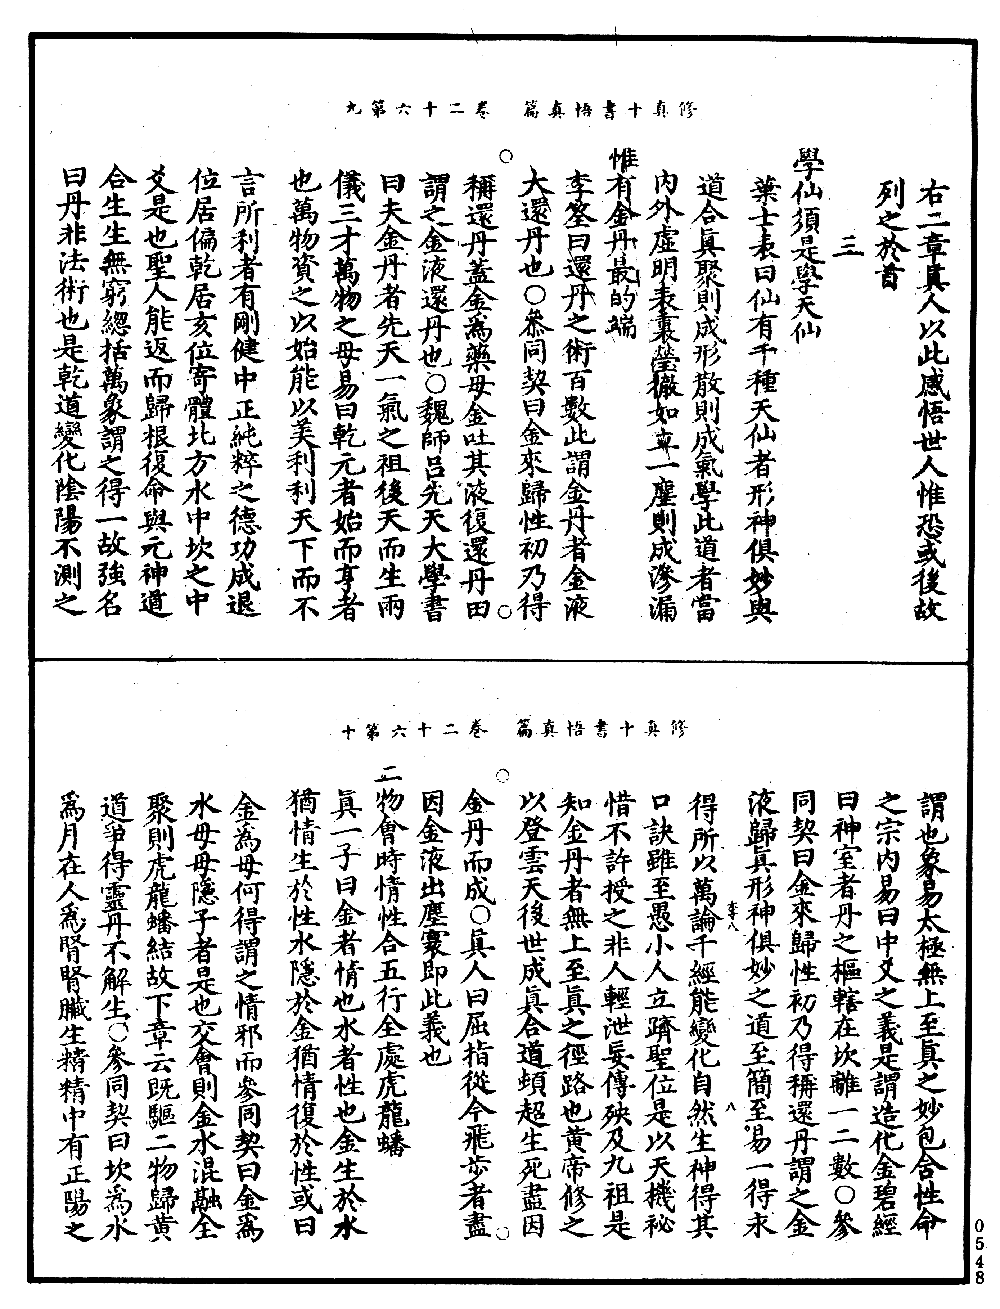 修真十書悟真篇　卷二十六第九
右二章真人以此感悟世人惟恐或後故
列之於首
三
學仙須是學天仙
葉士表曰仙有千種天仙者形神俱妙與
道合眞聚則成形散則成氣學此道者當
內外虛明表裏瑩徹如立一塵則成滲漏
惟有金丹最的端
李筌曰還丹之術百數此謂金丹者金液
大還丹也○參同契曰金來歸性初乃得
稱還丹蓋金爲藥母金吐其液復還丹田
謂之金液還丹也○魏師呂先天大學書
曰夫金丹者先天一氣之祖後天而生兩
儀三才萬物之母易曰乾元者始而亨者
也萬物資之以始能以美利利天下而不
言所利者有剛健中正純粹之德功成退
位居偏乾居亥位寄體北方水中坎之中
爻是也聖人能返而歸根復命與元神遒
合生生無窮總括萬象謂之得一故強名
曰丹非法術也是乾道變化陰陽不測之
修真十書悟真篇　卷二十六第十
謂也象易太極無上至眞之妙包含性命
之宗內易曰中爻之義是謂造化金碧經
曰神室者丹之樞轄在坎離一二數○參
同契曰金來歸性初乃得稱還丹謂之金
液歸眞形神俱妙之道至簡至易一得永
得所以萬論千經能變化自然生神得其
口訣雖至愚小人立躋聖位是以天機祕
惜不許授之非人輕泄妄傳殃及九祖是
知金丹者無上至眞之徑路也黃帝修之
以登雲天後世成眞合道頓超生死盡因
金丹而成○眞人曰屈指從今飛步者盡
因金液出塵寰即此義也
二物會時情性合五行全處虎龍蟠
眞一子曰金者情也水者性也金生於水
猶情生於性水隱於金猶情復於性或曰
金爲母何得謂之情邪而參同契曰金爲
水母母隱子者是也交會則金水混融全
聚則虎龍蟠結故下章云既驅二物歸黃
道爭得靈丹不解生○參同契曰坎爲水
爲月在人爲腎腎臟生精精中有正陽之
0548